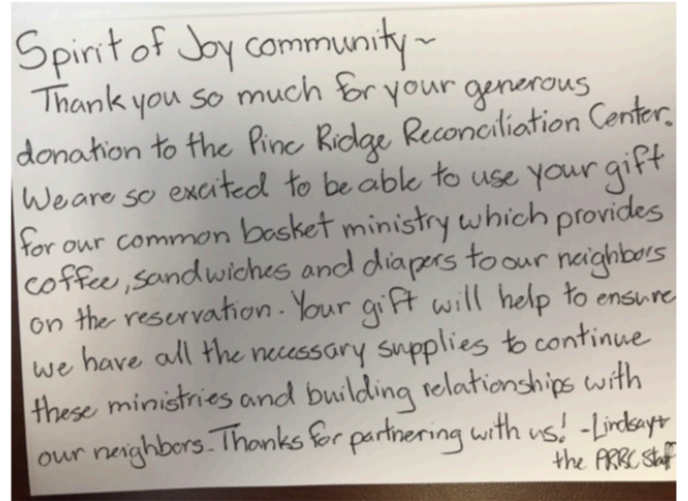 Spirit of Joy community~
Thank you so much for your generous
donation to the Pine Ridge Reconciliation Center.
We are so excited to be able to use your gift
for our common basket ministry which provides
coffee, sandwiches and diapers to our neighbors
on the reservation. Your gift will help to ensure
we have all the necessary supplies to continue
these ministries and building relationships with
our neighbors. Thanks for partnering with us! -Lindsay+
the PRRC Staff